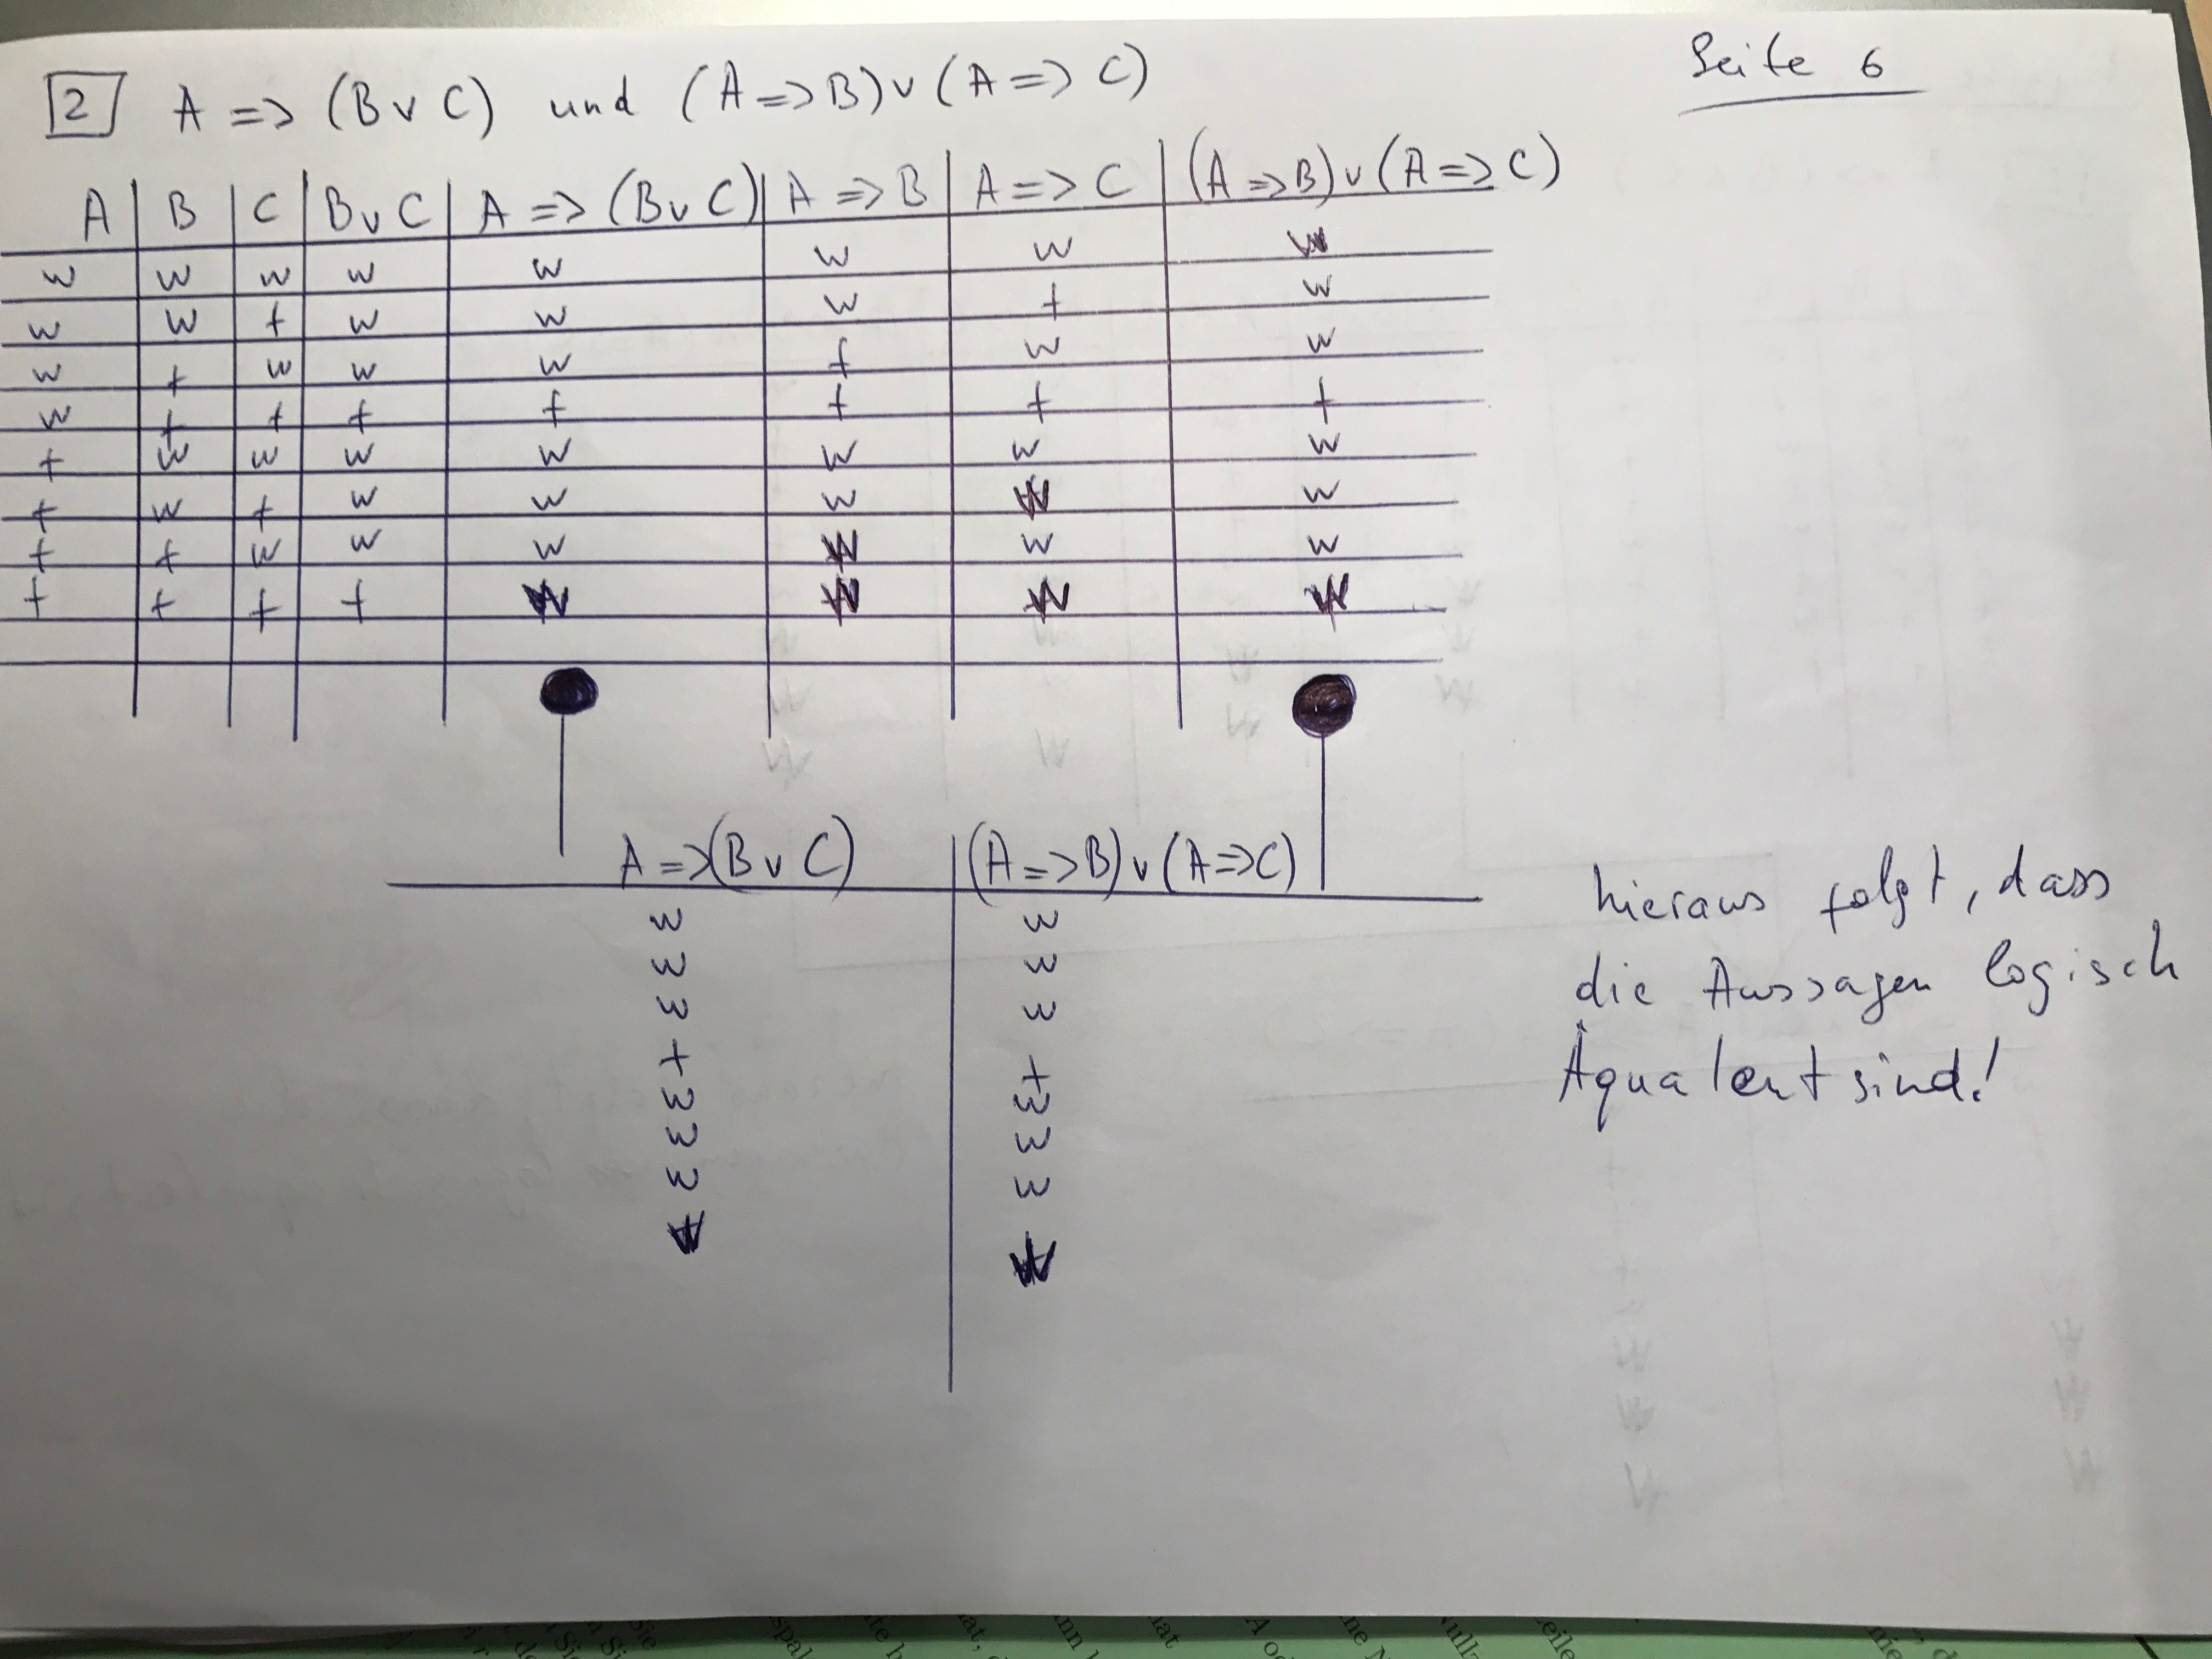 Seite 6
2 A => (B v C) und (A => B) v (A => C)
A B C B v C A => (B v C) A => B A => C (A => B) v (A => C)
w w w w w w w w
w w f w w w f w
w f w w w f w w
w f f f f f f f
f w w w w w w w
f w f w w w w w
f f w w w w w w
f f f f w w w w
A => (B v C) (A => B) v (A => C)
w w
w w
w w
f f
w w
w w
w w
w w
hieraus folgt, dass
die Aussagen logisch
Äqualent sind!